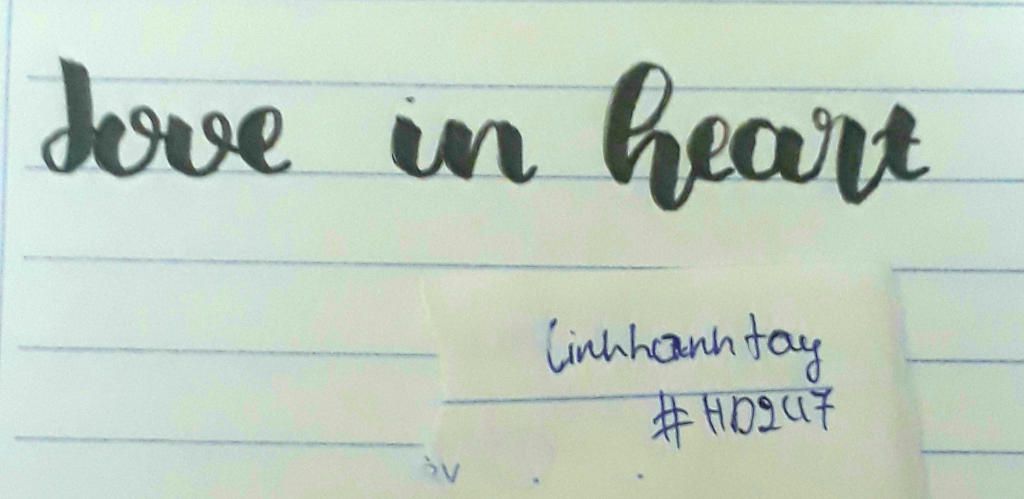 love in heart
linhhanhtay
#HD247